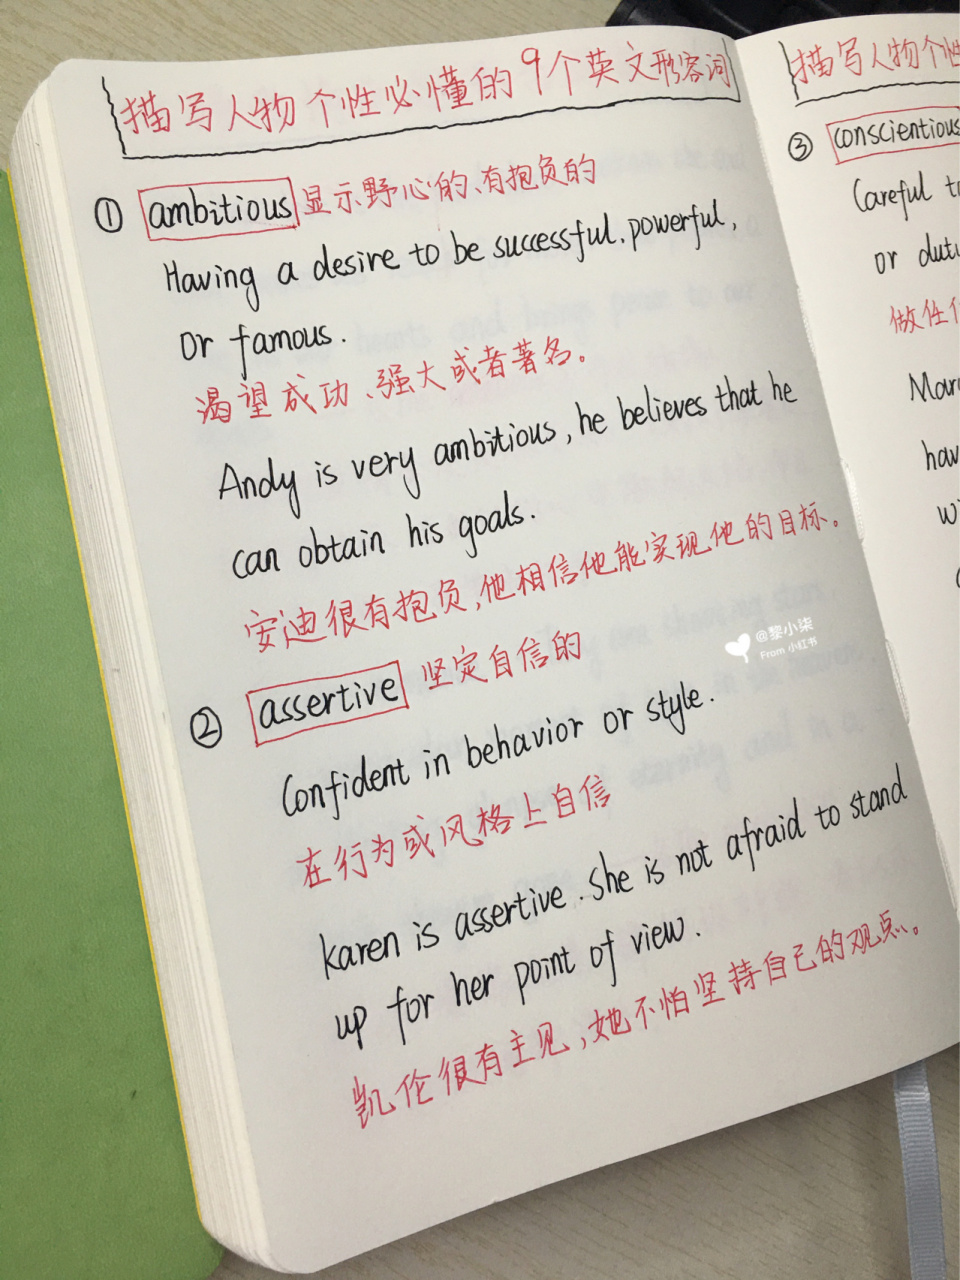 描写人物个性必懂的9个英文形容词
① ambitious 显示野心的、有抱负的
Having a desire to be successful, powerful,
or famous.
渴望成功、强大或者著名。
Andy is very ambitious, he believes that he
can obtain his goals.
安迪很有抱负,他相信他能实现他的目标。
② assertive 坚定自信的
Confident in behavior or style.
在行为或风格上自信
karen is assertive. She is not afraid to stand
up for her point of view.
凯伦很有主见,她不怕坚持自己的观点。
@黎小柒
From 小红书
描写人物个性
③ conscientious
Careful
or
做任
hav